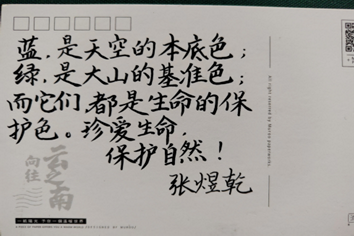 蓝,是天空的本底色;
绿,是大山的基准色;
而它们都是生命的保
护色。珍爱生命,
保护自然!
张煜乾
向往
云之南